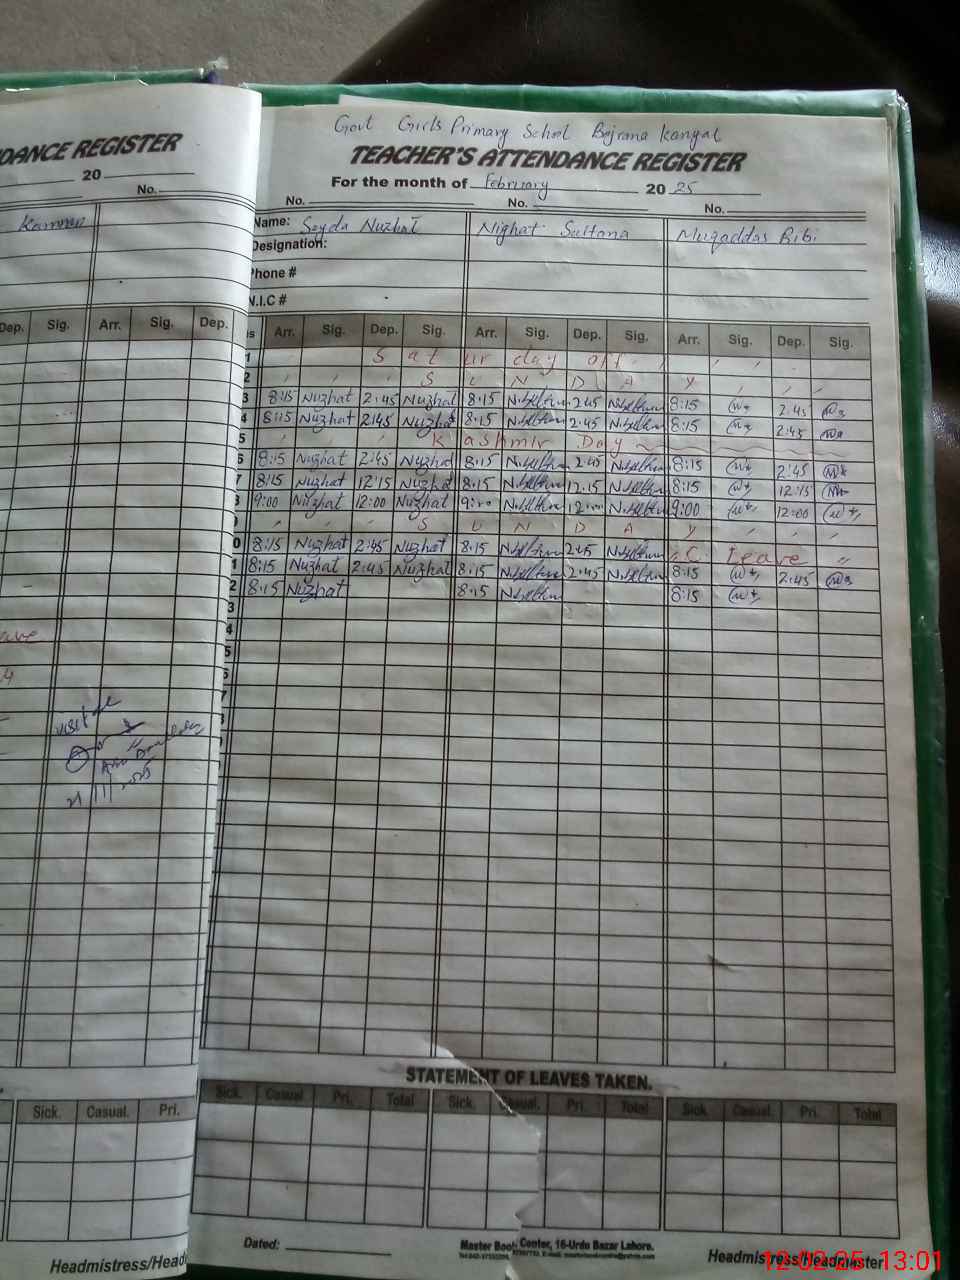 DANCE REGISTER
20
No.
Dep. Sig. Arr. Sig. Dep.
visit
Sick. Casual. Pri.
Headmistress/Head
Govt Girls Primary School Bejrana Kangal
TEACHER'S ATTENDANCE REGISTER
For the month of February 20 25
No. No. No.
Name: Sayda Nuzhat Nighat Sultana Muqaddas Bibi
Designation:
Phone #
N.I.C #
Arr. Sig. Dep. Sig. Arr. Sig. Dep. Sig. Arr. Sig. Dep. Sig.
1 Saturday off
2 S U N D A Y
3 8:15 Nuzhat 2:45 Nuzhat 8:15 N.Sultana 2:45 N.Sultana 8:15 2:45
4 8:15 Nuzhat 2:45 Nuzhat 8:15 N.Sultana 2:45 N.Sultana 8:15 2:45
5 Kashmir Day
6 8:15 Nuzhat 2:45 Nuzhat 8:15 N.Sultana 2:45 N.Sultana 8:15 2:45
7 8:15 Nuzhat 12:15 Nuzhat 8:15 N.Sultana 12:15 N.Sultana 8:15 12:15
8 9:00 Nuzhat 12:00 Nuzhat 9:00 N.Sultana 12:00 N.Sultana 9:00 12:00
S U N D A Y
0 8:15 Nuzhat 2:45 Nuzhat 8:15 N.Sultana 2:45 N.Sultana C. Leave "
1 8:15 Nuzhat 2:45 Nuzhat 8:15 N.Sultana 2:45 N.Sultana 8:15 2:45
2 8:15 Nuzhat 8:15 N.Sultana 8:15
3
4
5
STATEMENT OF LEAVES TAKEN.
Sick. Casual Pri. Total Sick. Casual. Pri. Total Sick. Casual. Pri. Total
Dated:
Master Book Center, 16-Urdu Bazar Lahore.
Headmistress/Headmaster
12-02-25-13:01